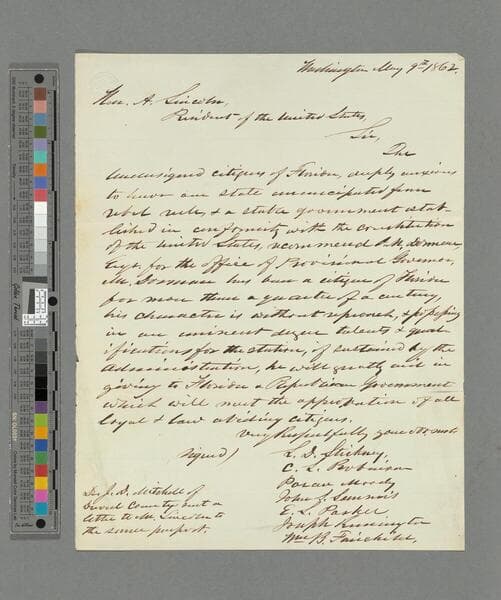 Washington May 9th 1862.
Hon. A. Lincoln,
President of the United States,
Sir,
The
undersigned citizens of Florida, deeply anxious
to have our state emancipated from
rebel rule, & a state government estab-
lished in conformity with the constitution
of the United States, recommend
for the office of Provisional Governor,
Mr. has been a citizen of Florida
for more than a quarter of a century,
his character is without reproach, & possessing
in an eminent degree talents & qual-
ifications for the station, if sustained by the
Administration, he will greatly aid in
giving to Florida a Republican Government
which will meet the approbation of all
loyal & law abiding citizens.
Very Respectfully your obt. servts
signed)
L. D. Stickney,
C. L. Robinson
Moody
John S. Sammis
E. L. Parker
Joseph Remington
Wm B. Fairchild,
Dr. J. D. Mitchell of
Duval County sent a
letter to Mr. Lincoln to
the same purport.